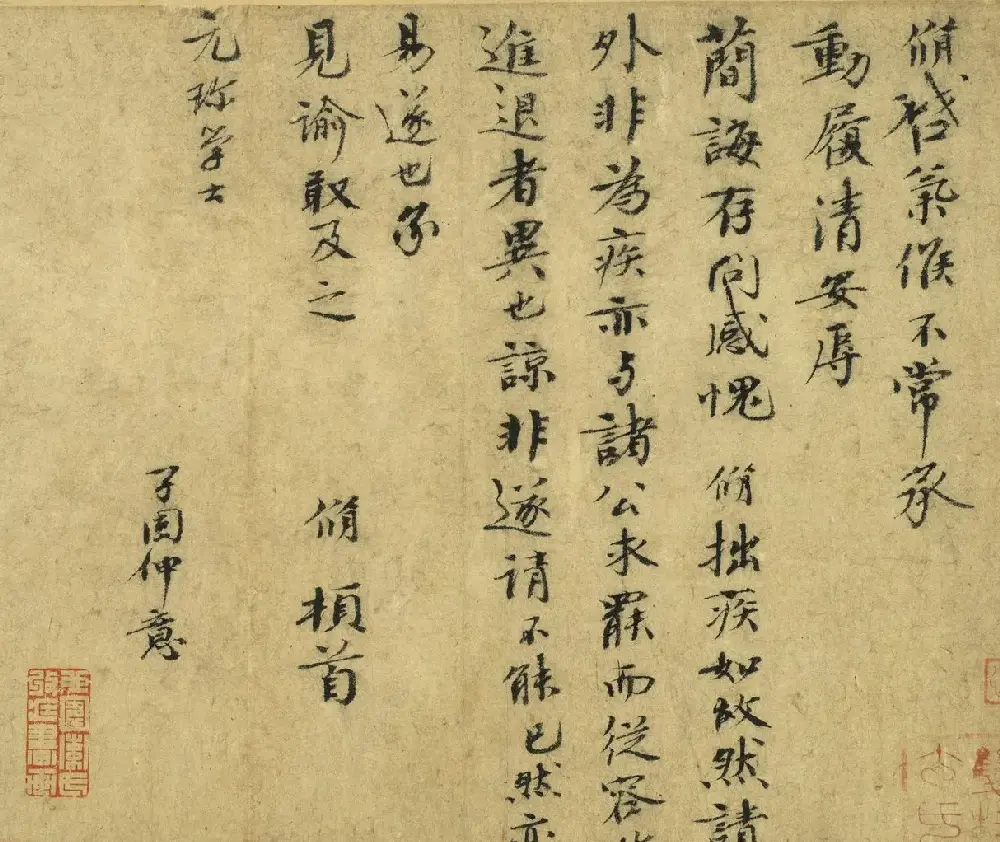 脩啓氣候不常承
動履清安辱
簡誨存問感愧 脩拙疾如故然請
外非為疾亦与諸公求罷而從容
進退者異也諒非遂請不能已然亦
易遂也承
見諭敢及之
脩 頓首
元珍學士
子固仲意